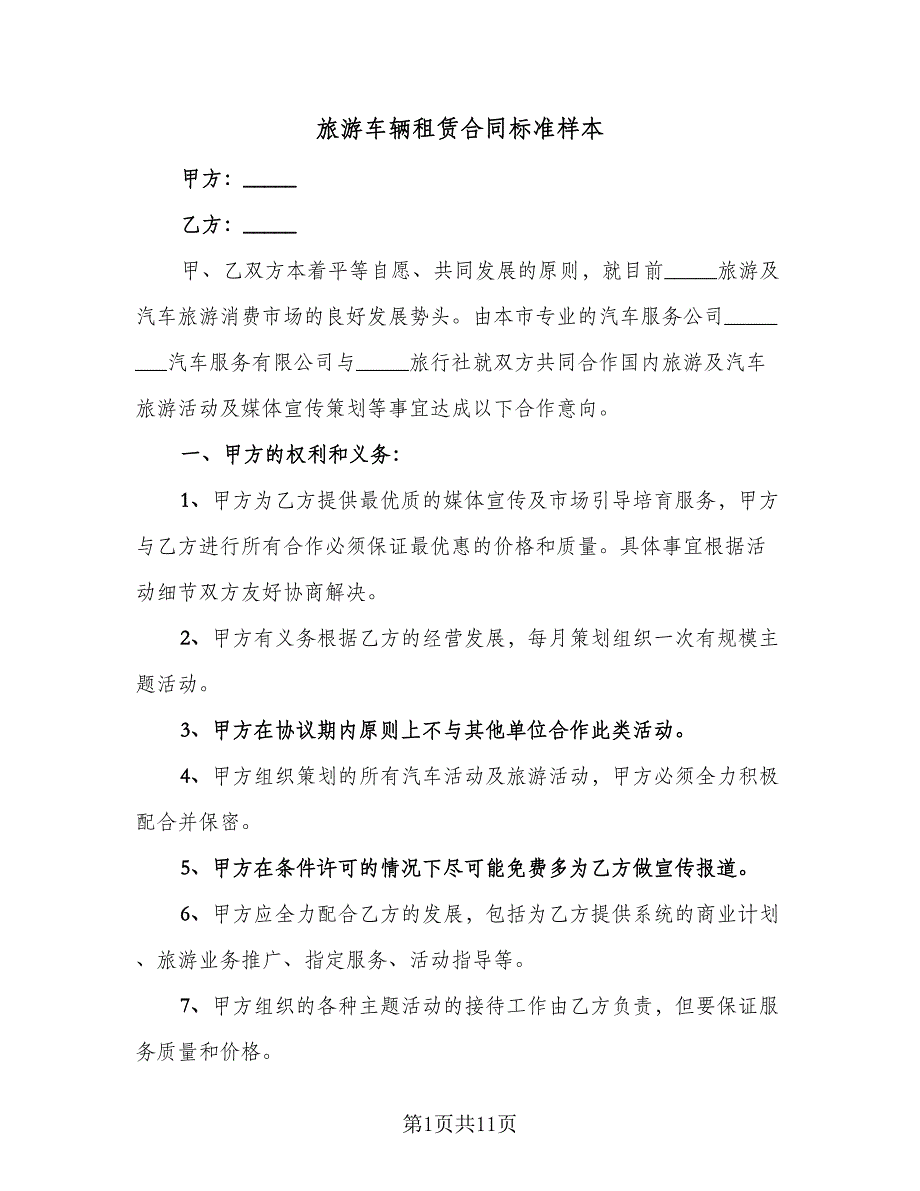 旅游车辆租赁合同标准样本
甲方：_____
乙方：_____
甲、乙双方本着平等自愿、共同发展的原则，就目前_____旅游及
汽车旅游消费市场的良好发展势头。由本市专业的汽车服务公司_____
___汽车服务有限公司与_____旅行社就双方共同合作国内旅游及汽车
旅游活动及媒体宣传策划等事宜达成以下合作意向。
一、甲方的权利和义务：
1、甲方为乙方提供最优质的媒体宣传及市场引导培育服务，甲方
与乙方进行所有合作必须保证最优惠的价格和质量。具体事宜根据活
动细节双方友好协商解决。
2、甲方有义务根据乙方的经营发展，每月策划组织一次有规模主
题活动。
3、甲方在协议期内原则上不与其他单位合作此类活动。
4、甲方组织策划的所有汽车活动及旅游活动，甲方必须全力积极
配合并保密。
5、甲方在条件许可的情况下尽可能免费多为乙方做宣传报道。
6、甲方应全力配合乙方的发展，包括为乙方提供系统的商业计划
、旅游业务推广、指定服务、活动指导等。
7、甲方组织的各种主题活动的接待工作由乙方负责，但要保证服
务质量和价格。
第1页共11页